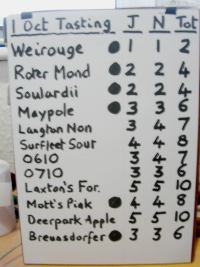 1 Oct Tasting J N Tot
Weirouge ● 1 1 2
Roter Mond ● 2 2 4
Soulardii ● 2 2 4
Maypole ● 3 3 6
Langton Non 3 4 7
Surfleet Sour 4 4 8
0610 3 4 7
0710 3 3 6
Laxton's For. 5 5 10
Mott's Pink ● 4 4 8
Deerpark Apple 5 5 10
Breunsdorfer ● 3 3 6